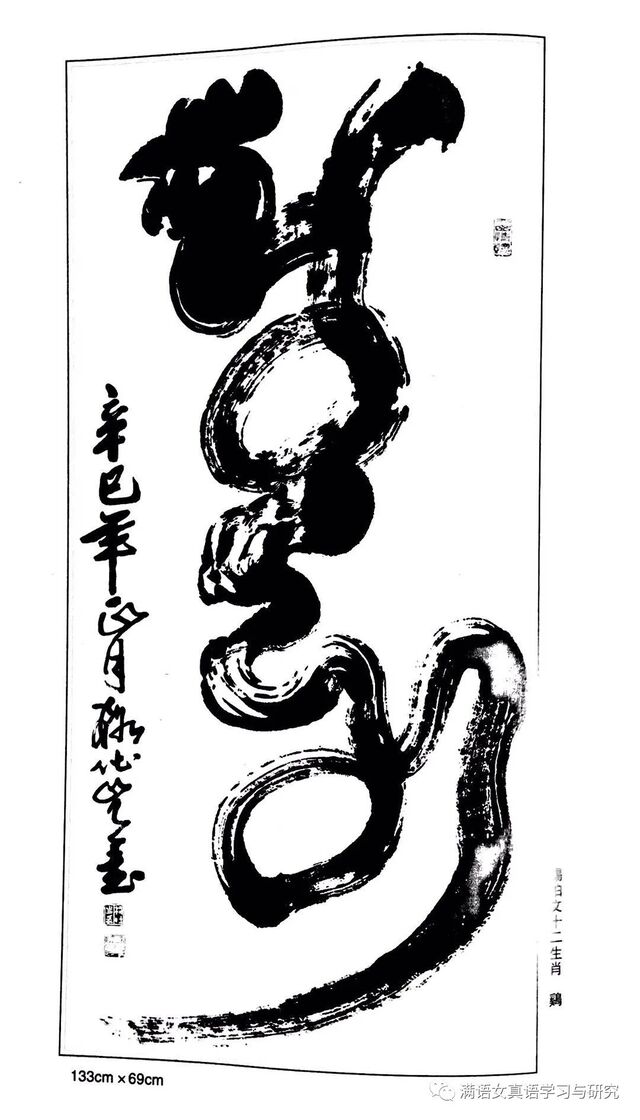 ᠴᠣᡴᠣ
辛巳年正月
錫伯文十二生肖 鷄
133cm×69cm
满语女真语学习与研究